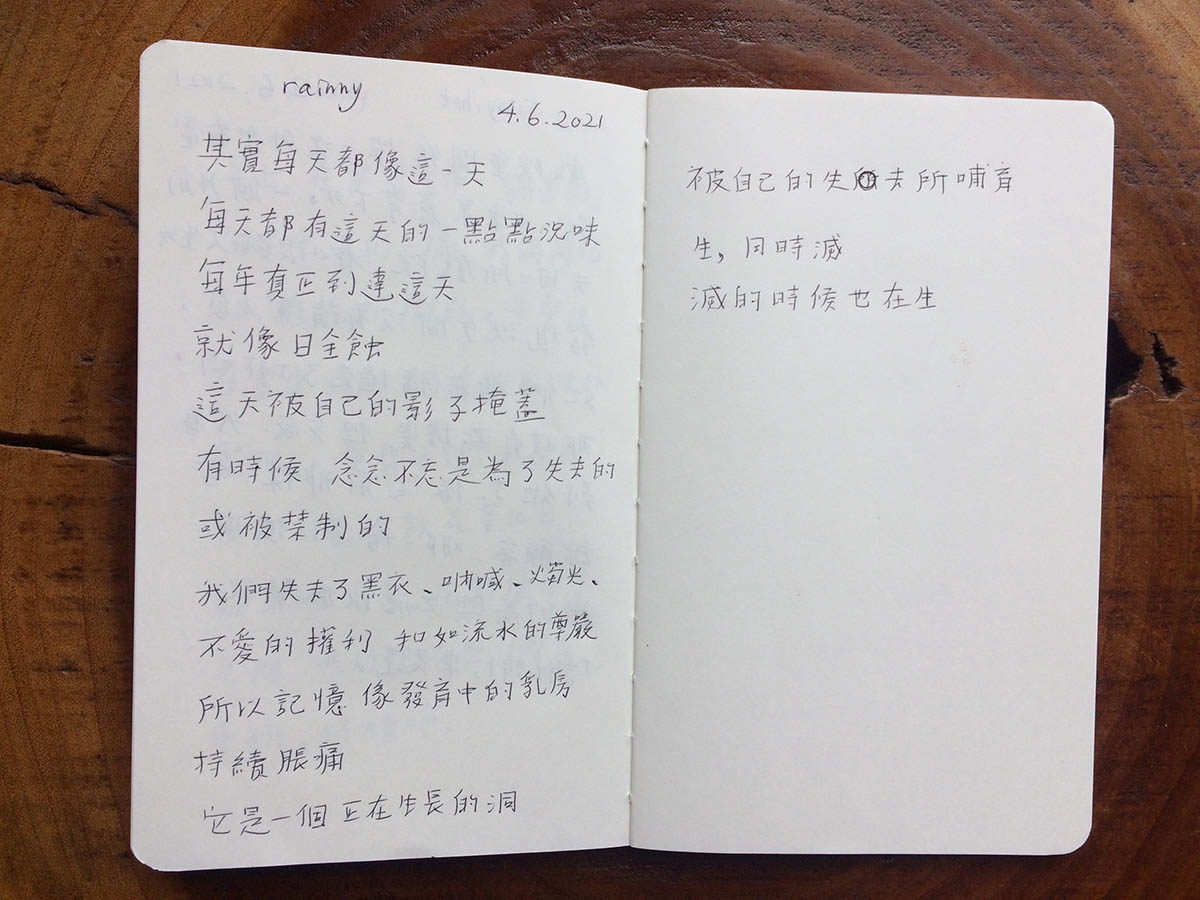 rainny
4.6.2021
其實每天都像這一天
每天都有這天的一點點況味
每年真正到達這天
就像日全蝕
這天被自己的影子掩蓋
有時候 念念不忘是為了失去的
或被禁制的
我們失去了黑衣、吶喊、燭光、
不愛的權利 和如流水的尊嚴
所以記憶像發育中的乳房
持續脹痛
它是一個正在生長的洞
被自己的失去所哺育
生，同時滅
滅的時候也在生